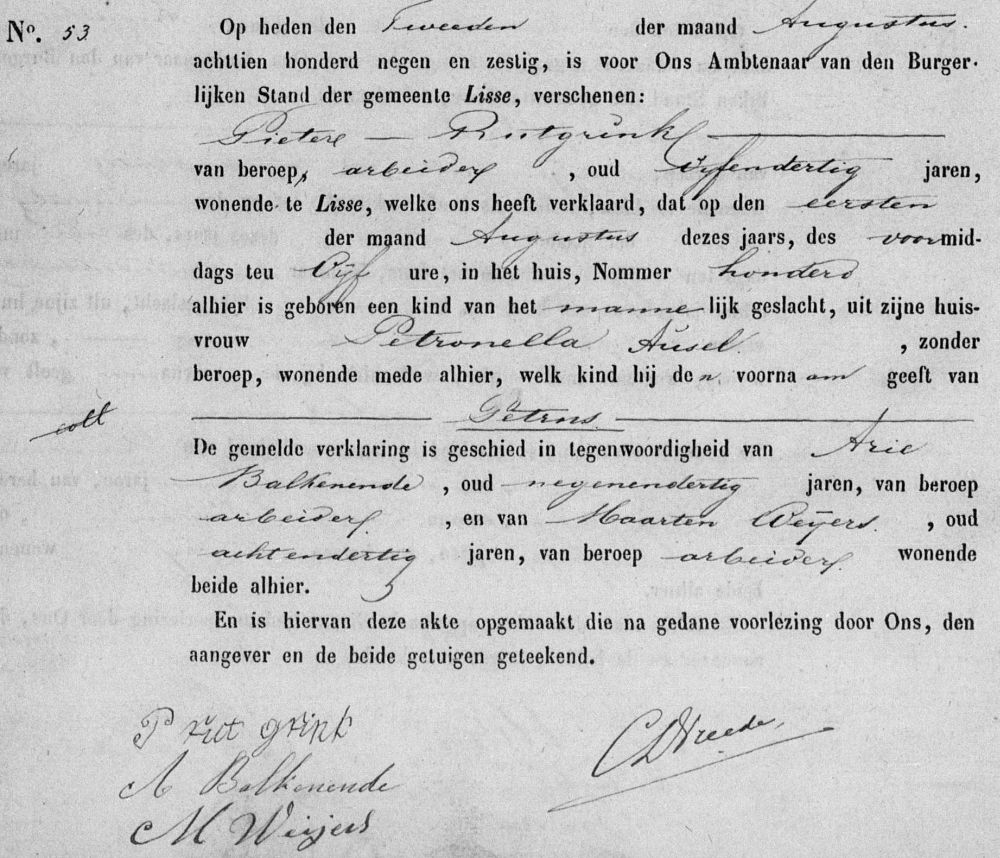 No. 53 Op heden den Tweeden der maand Augustus.
achttien honderd negen en zestig, is voor Ons Ambtenaar van den Burger-
lijken Stand der gemeente Lisse, verschenen:
Pieter Rutgrink
van beroep, arbeider, oud vyfendertig jaren,
wonende te Lisse, welke ons heeft verklaard, dat op den eersten
der maand Augustus dezes jaars, des voormid-
dags ten Vyf ure, in het huis, Nommer honderd
alhier is geboren een kind van het mannelijk geslacht, uit zijne huis-
vrouw Petronella Ausel, zonder
beroep, wonende mede alhier, welk kind hij den voornaam geeft van
Petrus.
De gemelde verklaring is geschied in tegenwoordigheid van Arie
Balkenende, oud negenendertig jaren, van beroep
arbeider, en van Maarten Weijers, oud
achtendertig jaren, van beroep arbeider wonende
beide alhier.
En is hiervan deze akte opgemaakt die na gedane voorlezing door Ons, den
aangever en de beide getuigen geteekend.
P rut grink
A Balkenende
M Weijers